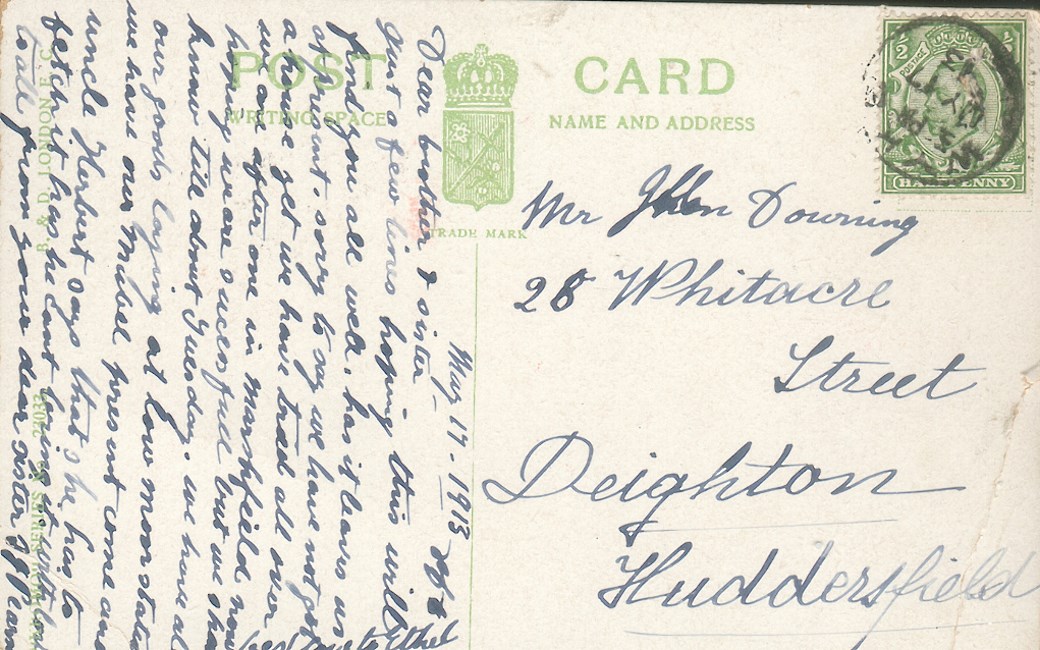 POST CARD
WRITING SPACE
NAME AND ADDRESS
TRADE MARK
HALFPENNY
POSTAGE
½ ½
B. & D. LONDON E.C.
24032
May 17. 1913
Dear brother & sister
Just a few lines hoping this will
find you all well, has it leaves us
at present. sorry to say we have not got
a house yet we have tried all over
we are after one in marshfield now
hoping we are sucessfull but we sha
know till about Tuesday. we have al
our goods laying at Low moor statio
we have our Mabel present come and
uncle Herbert says that she has to
fetch it hes he cant bring it without
to all from your dear sister
Mr John Downing
28 Whitacre
Street
Deighton
Huddersfield